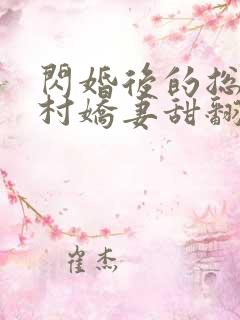 閃婚後的总
村嬌妻甜翻
崔杰